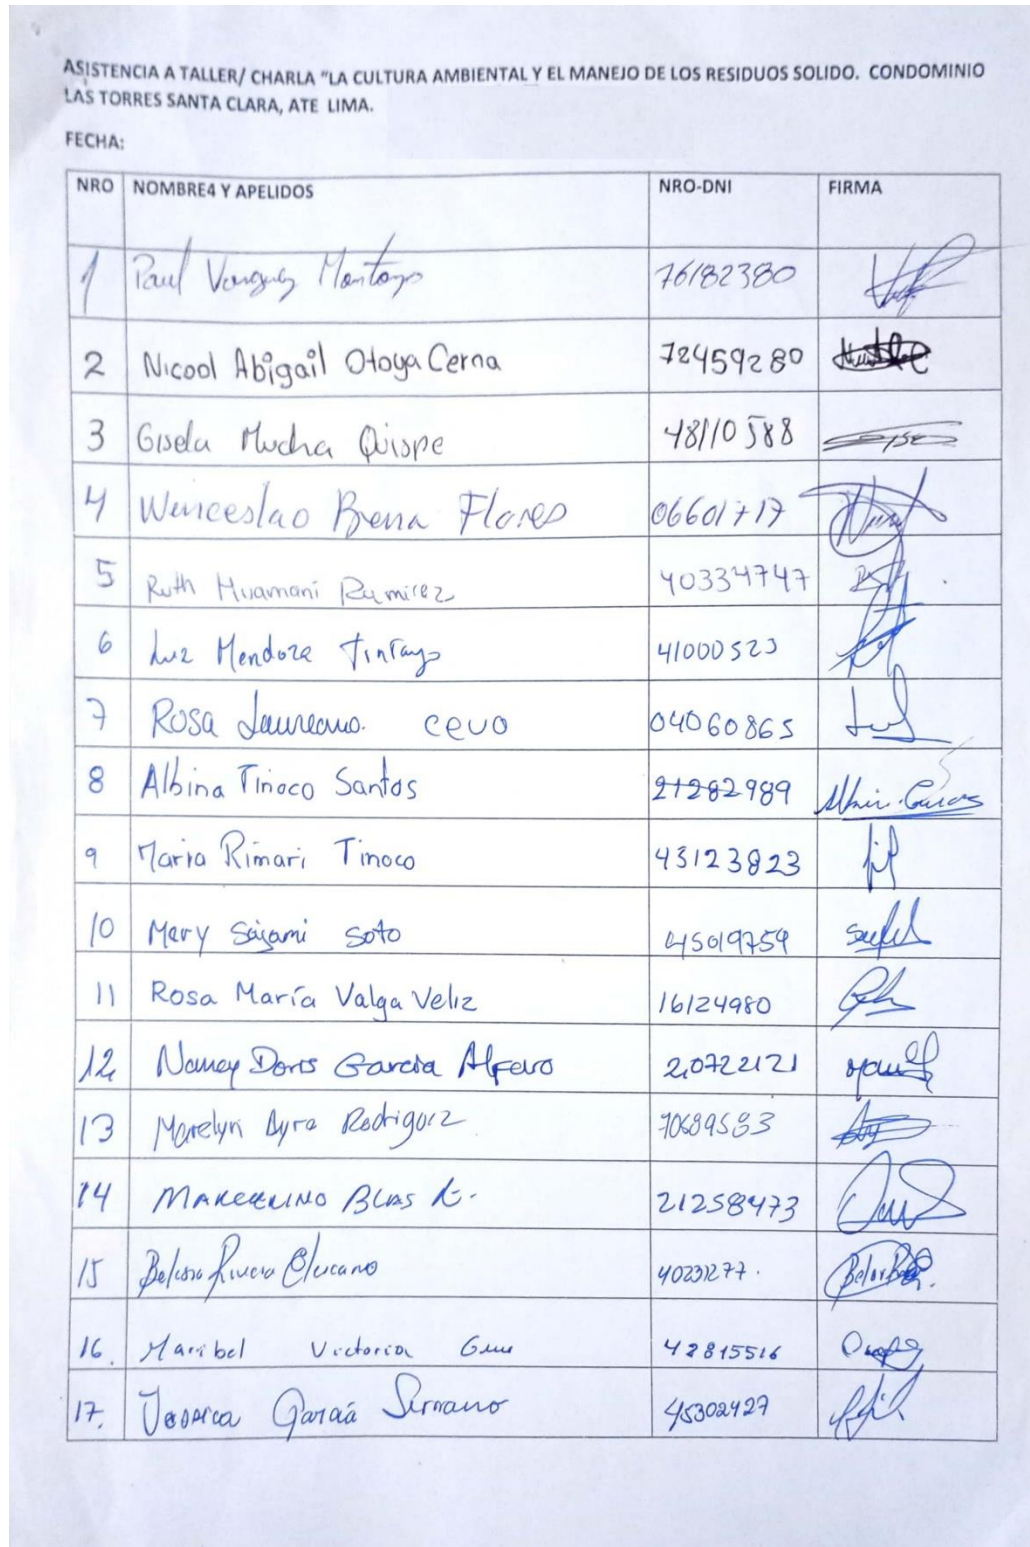 ASISTENCIA A TALLER/ CHARLA "LA CULTURA AMBIENTAL Y EL MANEJO DE LOS RESIDUOS SOLIDO. CONDOMINIO
LAS TORRES SANTA CLARA, ATE LIMA.
FECHA:
NRO NOMBRE4 Y APELIDOS NRO-DNI FIRMA
1 Paul Montoya 76182380
2 Nicool Abigail Otoya Cerna 72459280
3 Gisela Mucha Quispe 48110588
4 Wenceslao Flores 06601717
5 Ruth Huamani Ramirez 40334747
6 Luz Mendoza 41000523
7 Rosa Laureano. 04060865
8 Albina Tinoco Santos 21282989
9 Maria Rimari Tinoco 43123823
10 Mery Sajami Soto 45019759
11 Rosa María Valga Veliz 16124980
12 Nancy Doris Garcia Alfaro 20722121
13 Marelyn Ayra Rodriguez
14 Blas 21258473
15 Rivera 40231277.
16. Maribel Victoria 42815516
17. Jessica García Serrano 45302427